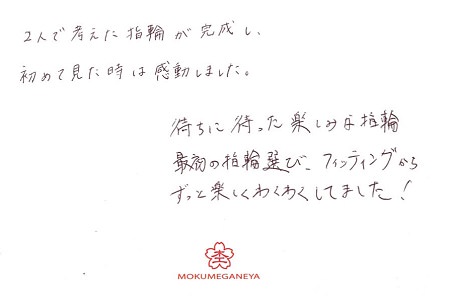 2人で考えた指輪が完成し、
初めて見た時は感動しました。
待ちに待った楽しみな指輪
最初の指輪選び、フィッティングから
ずっと楽しくわくわくしてました!
杢
MOKUMEGANEYA